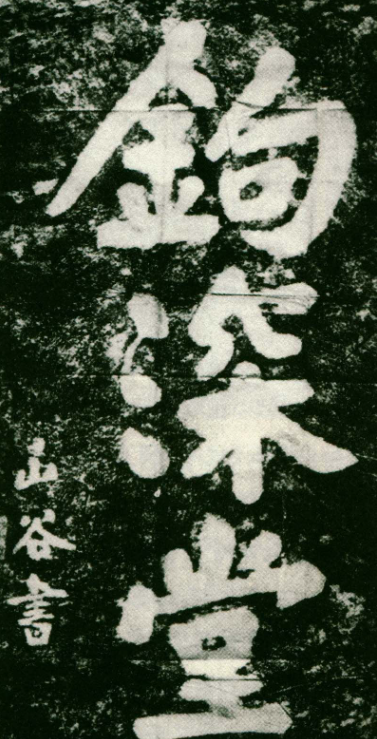 鉤深堂
山谷書